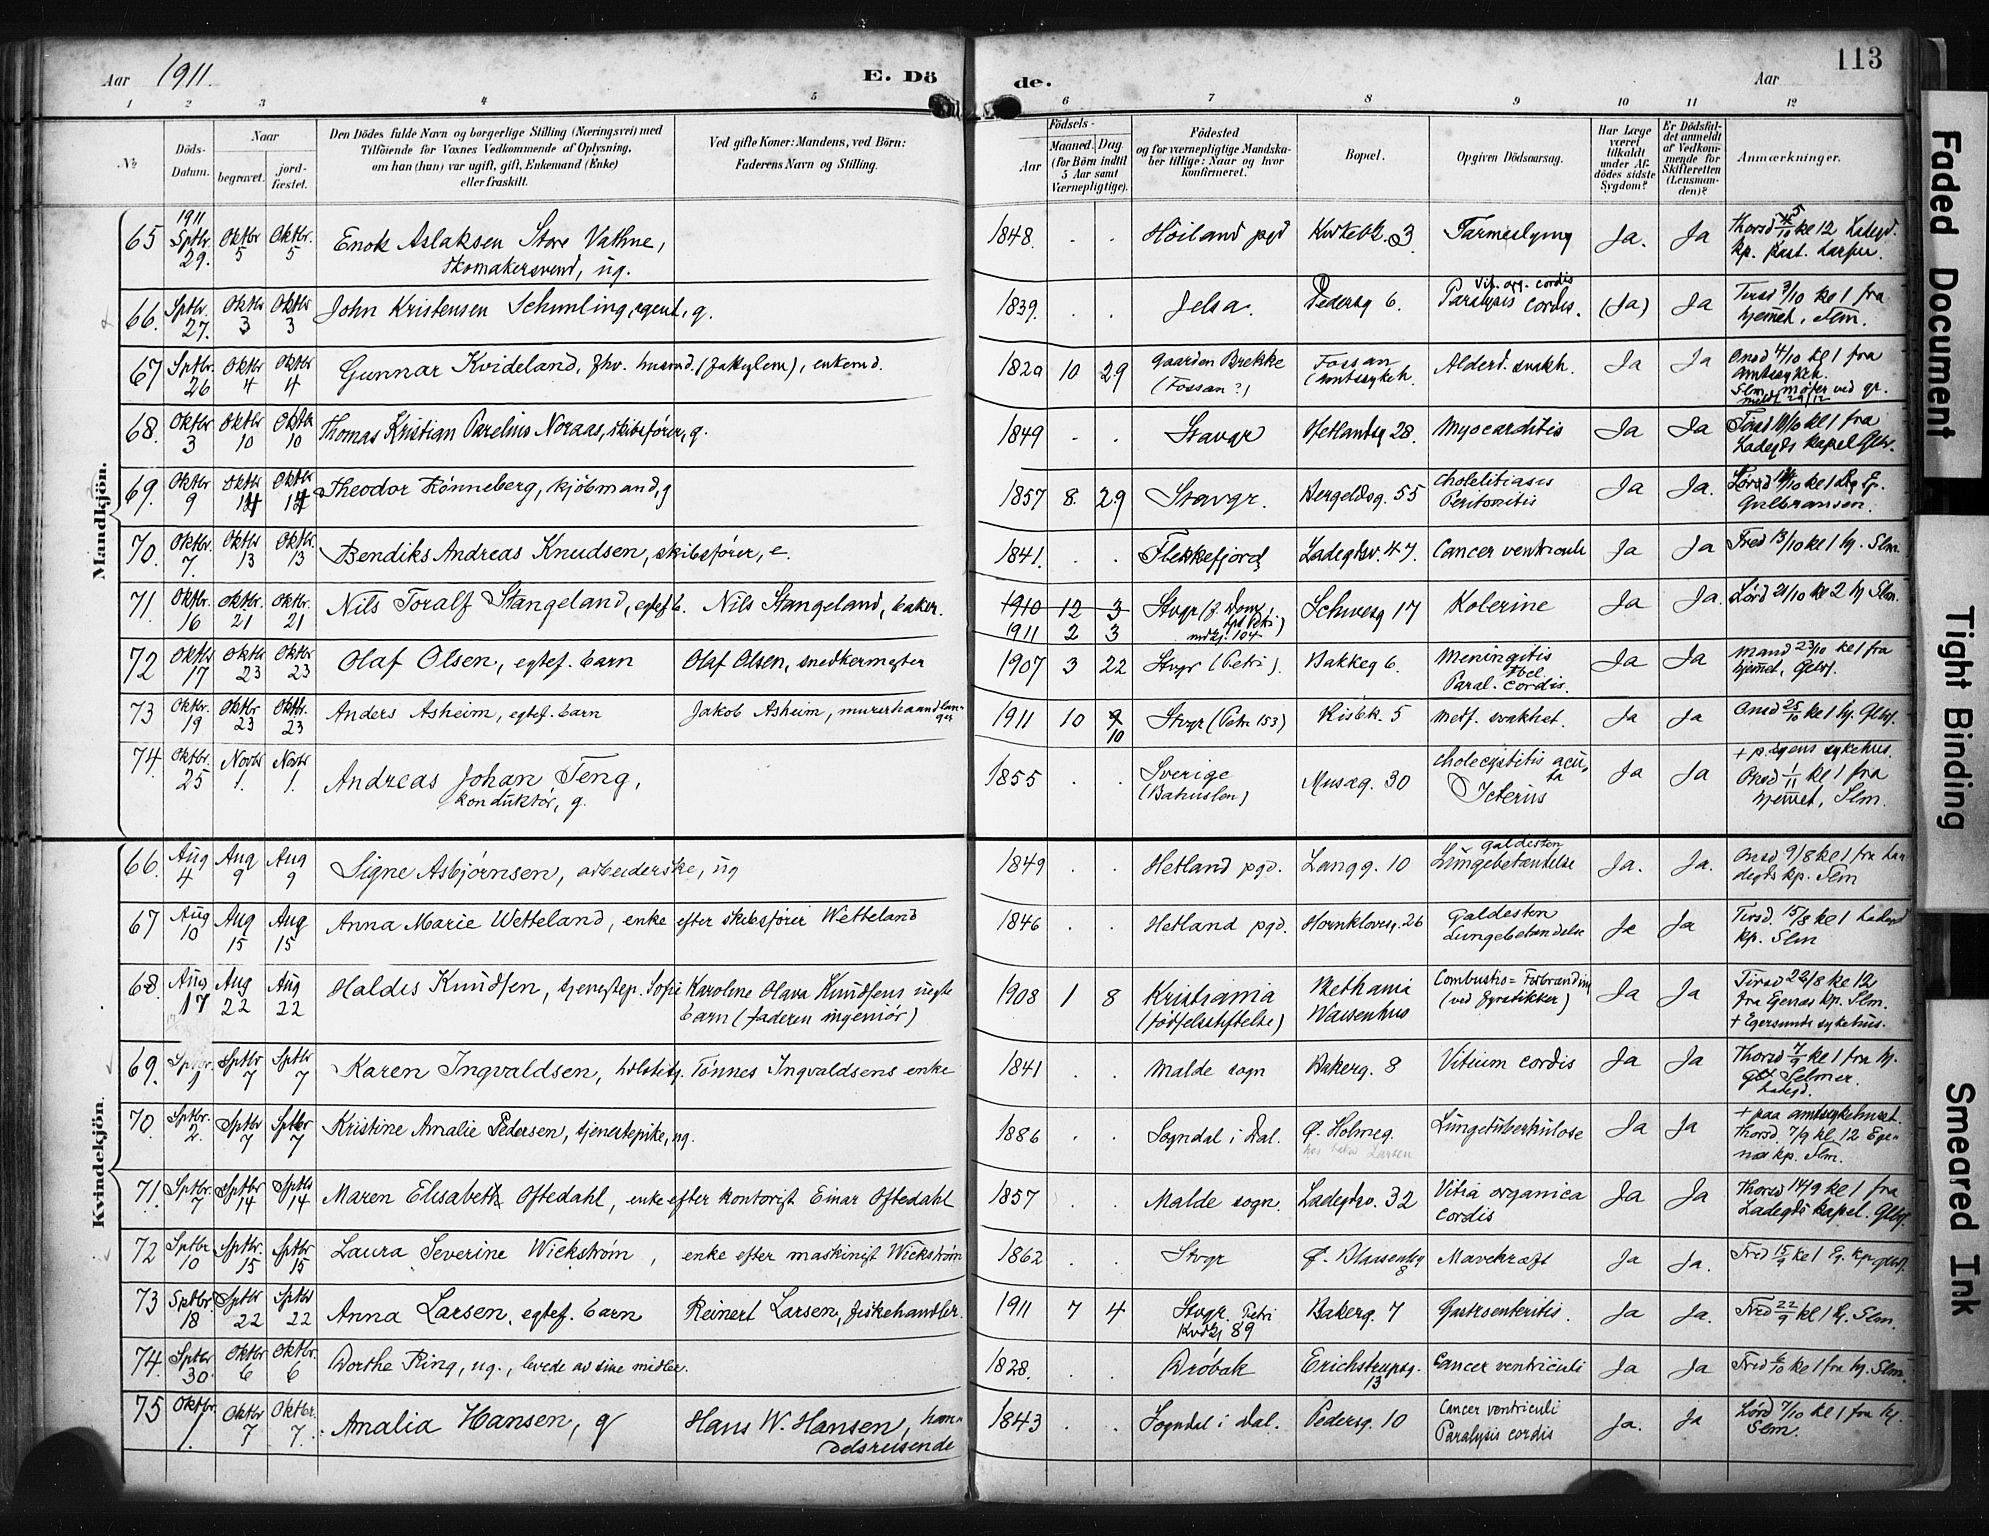 113
Aar 1911. E. Dö de. Aar
1 2 3 4 5 6 7 8 9 10 11 12
No. Döds-Datum. Naar begravet. jord-fæstet. Den Dödes fulde Navn og borgerlige Stilling (Næringsvei) med Tilföiende for Voxnes Vedkommende af Oplysning, om han (hun) var ugift, gift, Enkemand (Enke) eller fraskilt. Ved gifte Koner: Mandens, ved Börn: Faderens Navn og Stilling. Födsels- Aar Maaned. Dag (for Børn indtil 5 Aar samt Værnepligtige). Födested og for værnepligtige Mandskaber tillige: Naar og hvor konfirmeret. Bopæl. Opgiven Dödsaarsag. Har Læge været tilkaldt under Afdödes sidste Sygdom? Er Dödsfaldet anmeldt af Vedkommende for Skifteretten (Lensmanden)? Anmærkninger.
Mandkjön.
65 1911 Sptbr. 29. Oktbr 5 Oktbr. 5 Enok Aslaksen Store Vathne, skomakersvend, ug. 1848. . . Höiland pgd Kirkebk. 3 Tarmeslyng Ja. Ja Thorsd 5/10 kl 12 Ladegd. kp. past.
66. Sptbr. 27. Oktbr 3 Oktbr 3 John Kristensen Schmling, agent, g. 1839. . . Jelsa. Pedersg 6. Vit. org. cordis Paralysis cordis. (Ja) Ja Tirsd 3/10 kl 1 fra hjemet, Slm.
67 Sptbr. 26 Oktbr 4 Oktbr 4 Gunnar Kvideland, fhv. husmd, enkemd. 1820 10 29 Gaarden Brekke (Fossan?) Fossan (Amtssykeh. Alderd. svakh. Ja Ja Onsd 4/10 kl 1 fra Amtssykeh. Slm. møter ved gr. meldt 29/12
68. Oktbr 3 Oktbr 10 Oktbr 10 Thomas Kristian Parelius Noraas, skibsfører, g. 1849 . . Stavgr Hetlandsg 28. Myocarditis Ja Ja Tirsd 10/10 kl 1 fra Ladegds kapel Glbr.
69. Oktbr 9 Oktbr 14 Oktbr 14 Theodor Rønneberg, kjöbmand, g 1857 8. 29 Stavgr. Bergeldsg. 55 Cholelitiasis Peritonitis Ja Ja. Lørsd 14/10 kl 1 Gulbransen.
70. Oktbr. 7. Oktbr 13 Oktbr. 13 Bendiks Andreas Knudsen, skibsfører, e. 1841. . . Flekkefjord Ladegdsv. 47. Cancer ventriculi Ja Ja Fred 13/10 kl 1 hj. Slm.
71. Oktbr. 16 Oktbr. 21 Oktbr. 21 Nils Toralf Stangeland, egtef b. Nils Stangeland, baker. 1910 12 3 1911 2 3 Stvgr (f. Domk., dpt Petri) mdkj. 104 Schwesg 17 Kolerine Ja Ja. Lørd 21/10 kl 2 hj Slm.
72 Oktbr 17 Oktbr 23 Oktbr 23 Olaf Olsen, egtef. barn Olaf Olsen, snedkermester 1907 3 22 Stvgr (Petri). Bakkeg 6. Meningitis Paral. cordis. Ja Ja Mand 23/10 kl 1 fra hjemet, Glbr.
73 Oktbr. 19 Oktbr 23 Oktbr. 23 Anders Asheim, egtef. barn Jakob Asheim, murerhaandlanger 1911 10 9 10 Stvgr (Petri 153) Kisbk. 5 Medf. svakhet. Ja Ja Onsd 25/10 kl 1 hj. Glbr.
74. Oktbr. 25 Novbr 1. Novbr 1. Andreas Johan Teng, konduktør, g. 1855 . . Sverige (Bahuslen) Musæg. 30 Cholecystitis acuta Icterus Ja Ja + p. byens sykehus. Onsd 1/11 kl 1 fra hjemmet, Slm.
Kvindekjön.
66. Aug 4 Aug 9 Aug 9 Signe Asbjørnsen, arbeiderske, ug 1849 . . Hetland pgd. Langg. 10 Galdesten Lungebetændelse Ja. Ja. Onsd 9/8 kl 1 fra Ladegds kp. Slm
67 Aug 10 Aug 15 Aug 15 Anna Marie Wetteland, enke efter skibsfører Wetteland 1846 . . Hetland pgd. Hornklovesg. 26 Galdesten Lungebetændelse Ja Ja Tirsd. 15/8 kl 1 Ladegd kp. Slm
68. Aug 17 Aug 22 Aug 22 Haldis Knudsen, tjenestep. Sofie Karoline Olava Knudsens uegte barn (faderen ingeniør) 1908 1 8 Kristiania (fødselsstiftelse) Bethania Waisenhus Combustio = Forbrænding (ved fyrstikker) Ja Ja Tirsd 22/8 kl 12 fra Egenæs kp. Slm. + Egersunds sykehus.
69. Sptbr. 1 Sptbr 7 Sptbr 7 Karen Ingvaldsen, Tönnes Ingvaldsens enke 1841 . . Malde sogn Bakerg. 8 Vitium cordis Ja Ja Thorsd 7/9 kl 1 fra hj. Selmer. Ladegd.
70. Sptbr. 2. Sptbr 7 Sptbr 7 Kristine Amalie Pedersen, tjenestepike, ug. 1886 . . Sogndal i Dal. Ø. Holmeg. hos baker Larsen Lungetuberkulose Ja Ja + paa amtssykehuset. Thorsd. 7/9 kl 12 Egenæs kp. Slm.
71. Sptbr. 7 Sptbr 14 Sptbr 14 Maren Elisabeth Oftedahl, enke efter kontorist Einar Oftedahl 1857 . . Malde sogn. Ladegdsv. 32 Vitia organica cordis Ja Ja Thorsd 14/9 kl 1 fra Ladegds kapel. Glbr.
72 Sptbr 10 Sptbr. 15 Sptbr 15 Laura Severine Wickstrøm, enke efter maskinist Wickstrøm 1862 . . Stvgr Ø. Blaasenbg 8 Mavekræft Ja Ja. Fred 15/9 kl 1 Eg. kp. Glbr.
73 Sptbr. 18 Sptbr 22 Sptbr 22 Anna Larsen, egtef. barn Reinert Larsen, fiskehandler. 1911 7 4 Stvgr. Petri Kvdkj 89 Bakerg. 7 Gastroenteritis. Ja Ja Fred 22/9 kl 1 Slm.
74. Sptbr 30. Oktbr 6 Oktbr. 6 Dorthe Ring, ug., levede av sine midler. 1828. . . Drøbak Erichstrupsg. 13 Cancer ventriculi Ja Ja Fred 6/10 kl 1 fra hj. Slm.
75 Oktbr. 1. Oktbr 7 Oktbr. 7. Amalia Hansen, g Hans W. Hansen, handelsreisende 1843 . . Sogndal i Dal. Pedersg. 10 Cancer ventriculi Paralysis cordis Ja. Ja Lørd 7/10 kl 1 fra hj. Slm.
Faded Document
Tight Binding
Smeared Ink